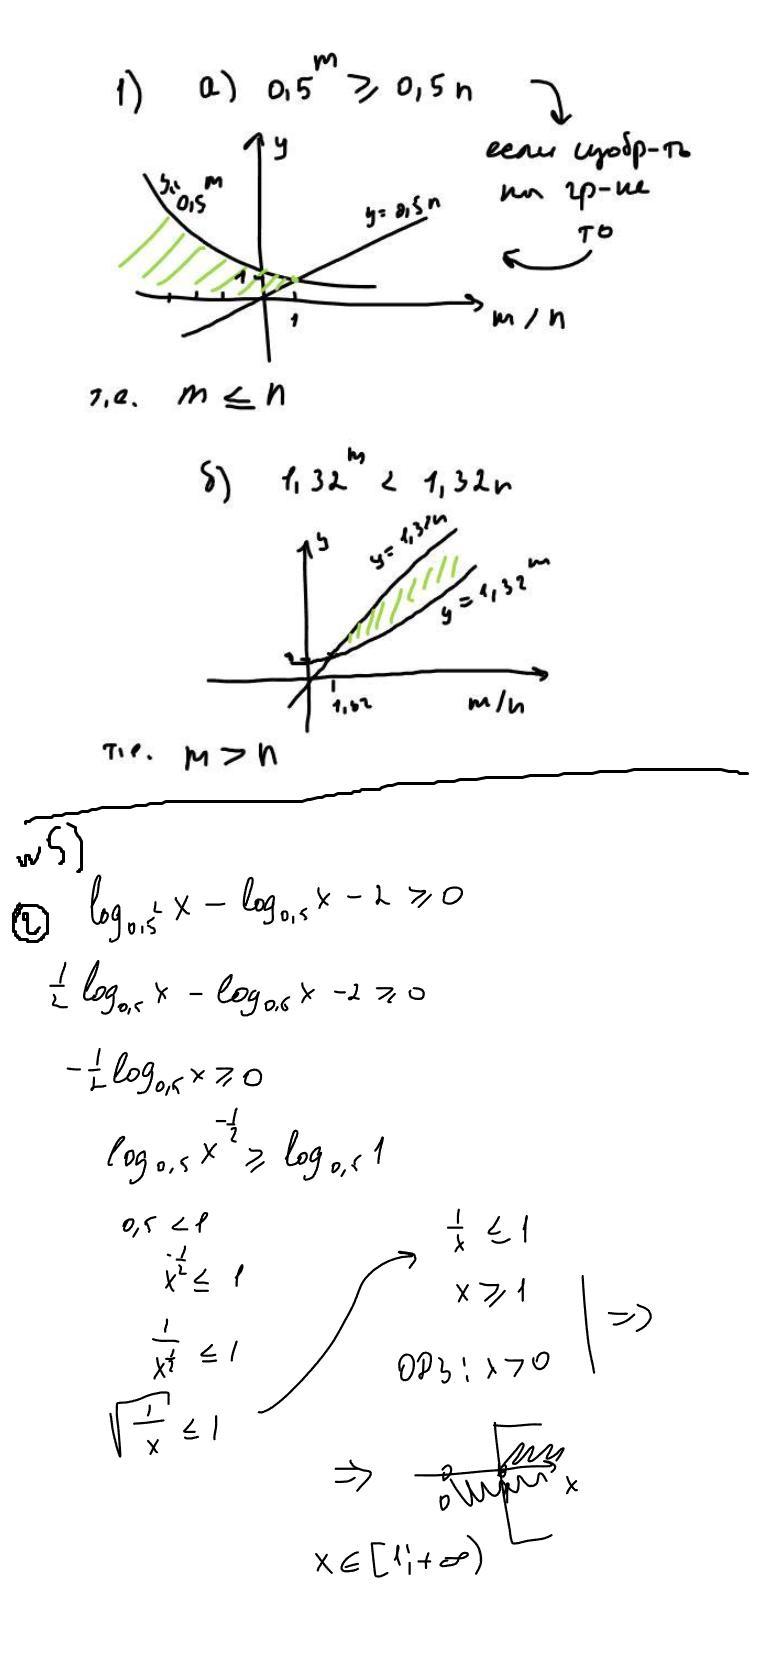 1) а) 0,5^m ≥ 0,5n
если изобр-ть
на гр-ке
то
y
y=0,5^m
y=0,5n
1
1
m/n
т.е. m ≤ n
б) 1,32^m < 1,32n
y
y=1,32n
y=1,32^m
1,32
m/n
т.е. m > n
№5)
② log_{0,5^2} x - log_{0,5} x - 2 ≥ 0
1/2 log_{0,5} x - log_{0,5} x - 2 ≥ 0
-1/2 log_{0,5} x ≥ 0
log_{0,5} x^{-1/2} ≥ log_{0,5} 1
0,5 < 1
x^{-1/2} ≤ 1
1/x^{1/2} ≤ 1
√(1/x) ≤ 1
1/x ≤ 1
x ≥ 1
ОДЗ: x > 0
⇒
⇒
0
x
x ∈ [1; +∞)